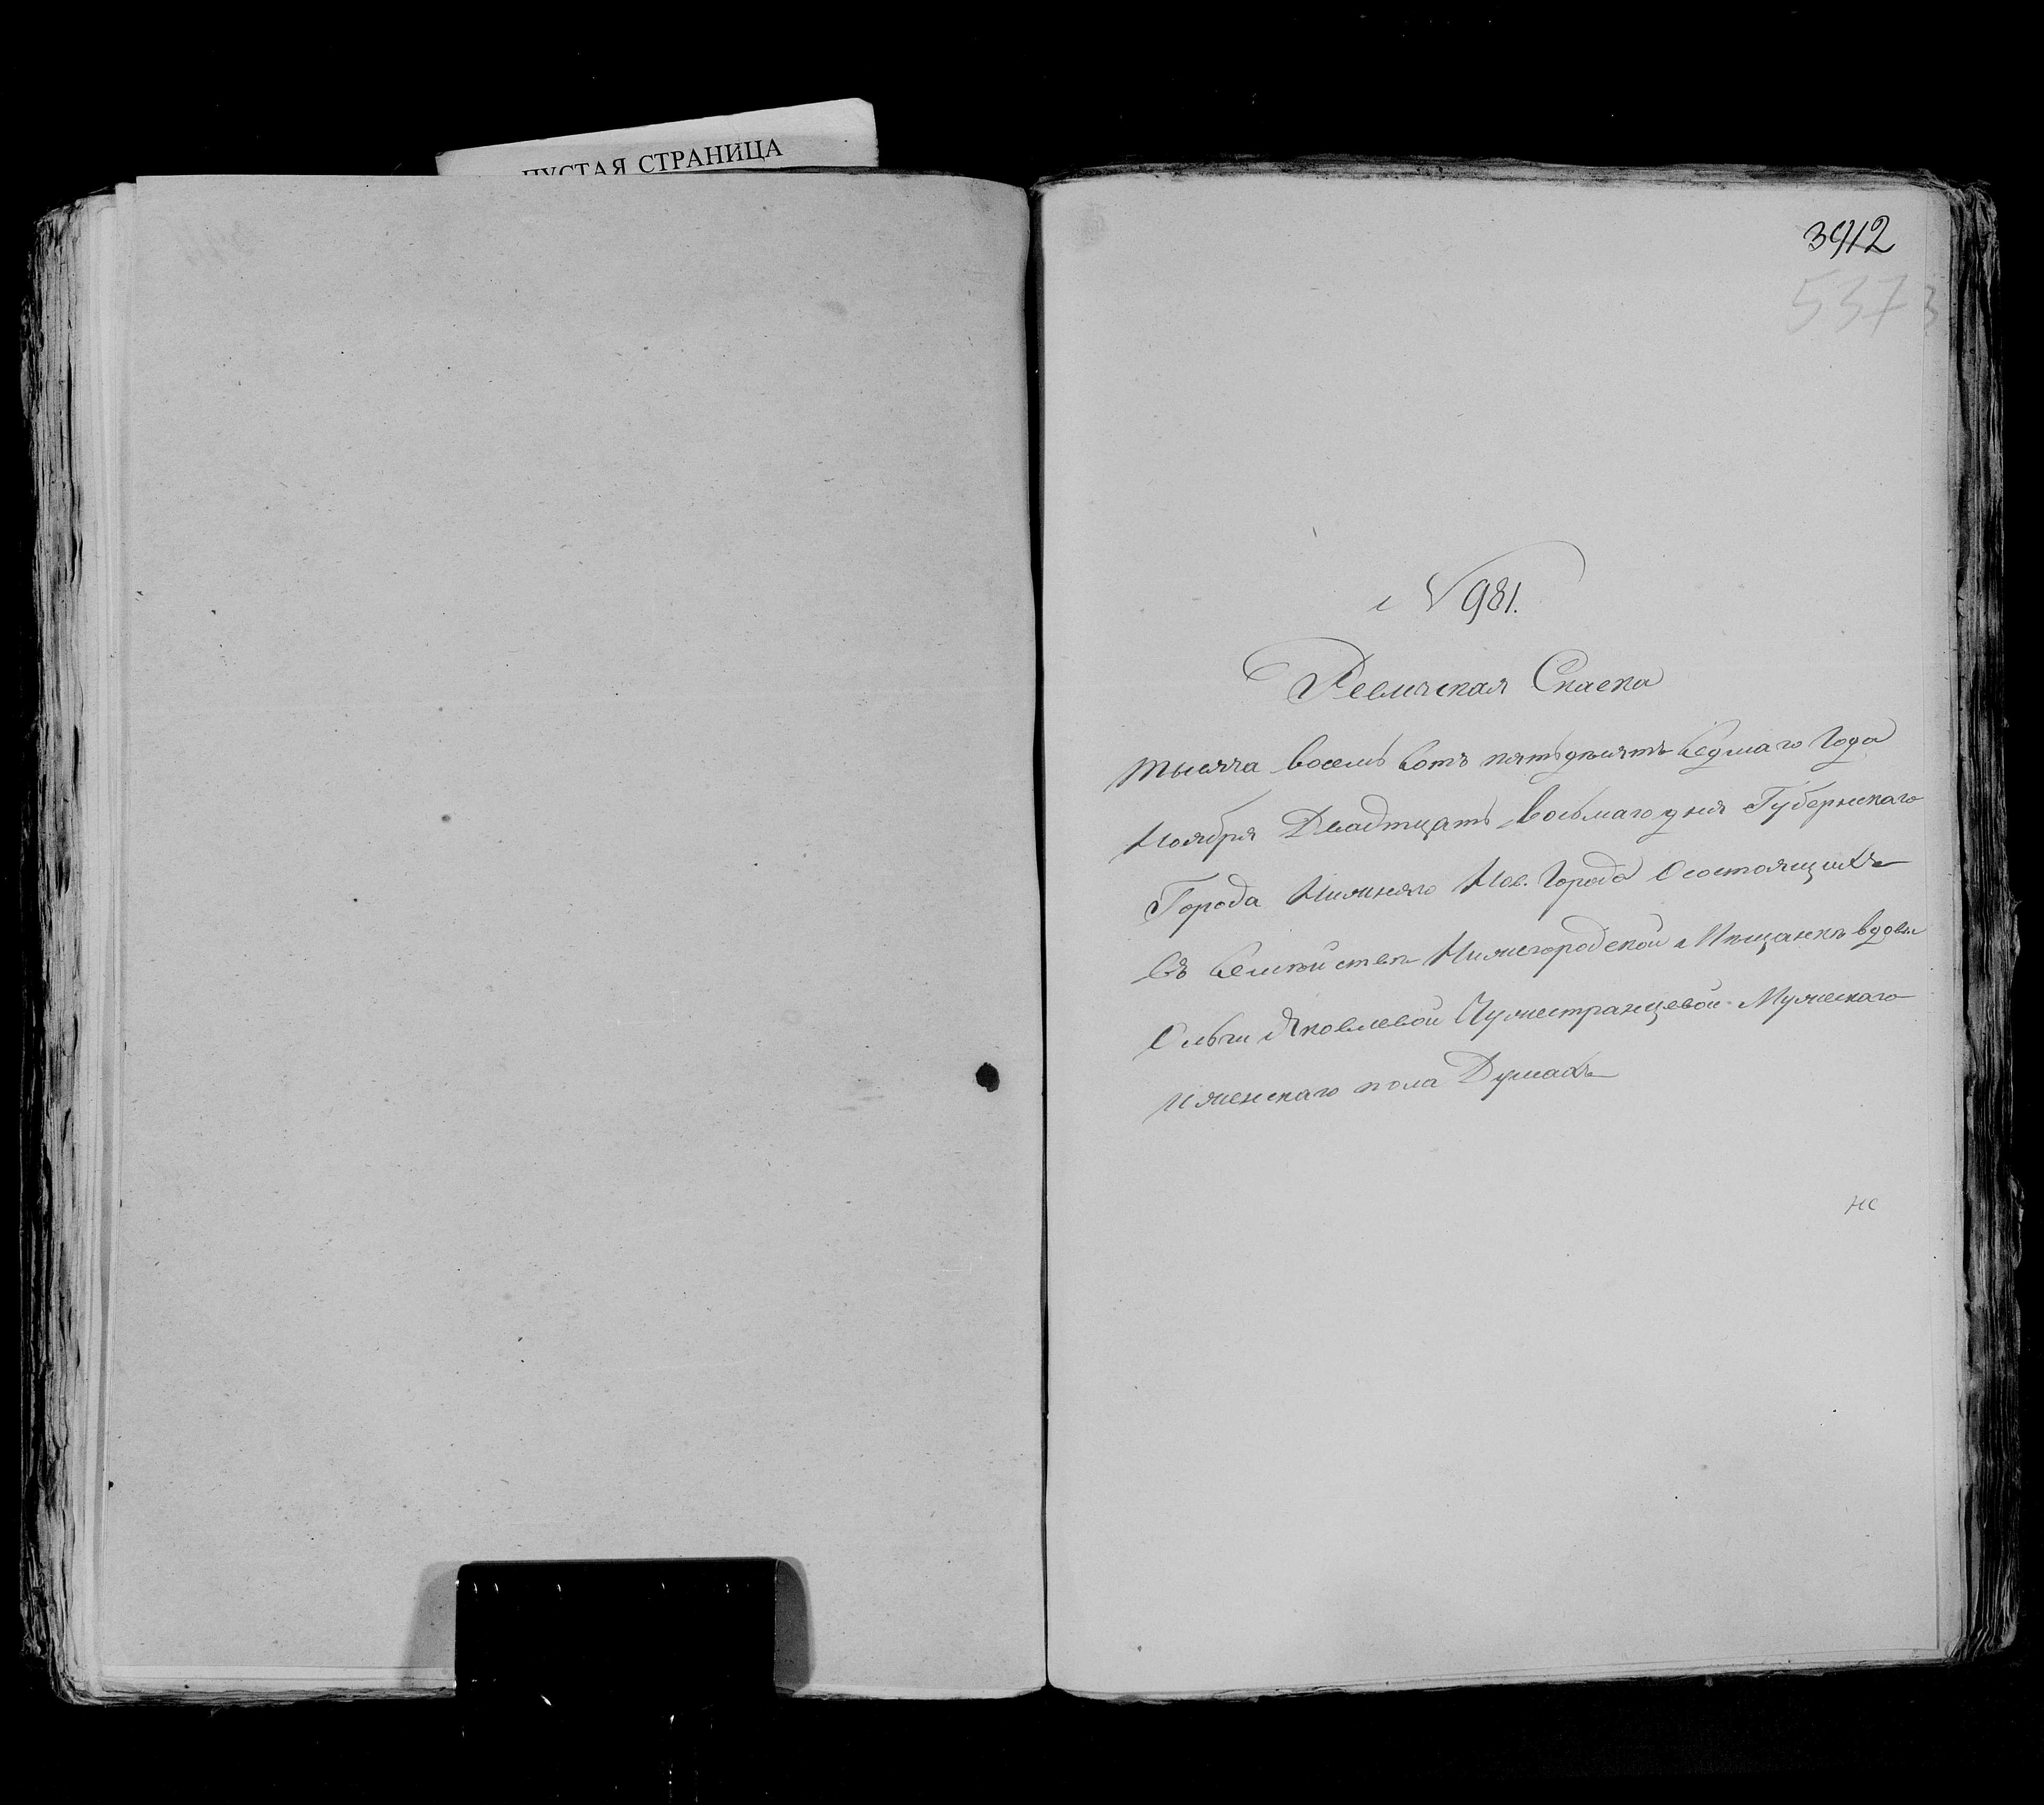 ПУСТАЯ СТРАНИЦА
3912
537
3
№ 981.
Ревижская Скаска
тысяча восемь сотъ пятьдѣсятъ седмаго Года
Ноября Двадтцать восьмаго дня Губернскаго
Города Нижняго Нов. Города О состоящихъ
въ семѣйстве Нижегородской Мѣщанкѣ вдовы
Ольги Яковлевой Чужестранцевой Мужескаго
и женскаго пола Душахъ
НС